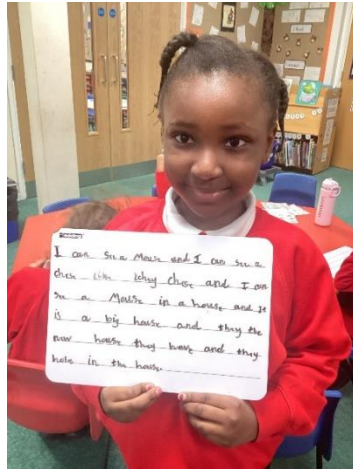 I can see a Mouse and I can see a
chese like ichy chese and I can
se a Mouse in a house and it
is a big house and they the
new house they have and they
hole in the house